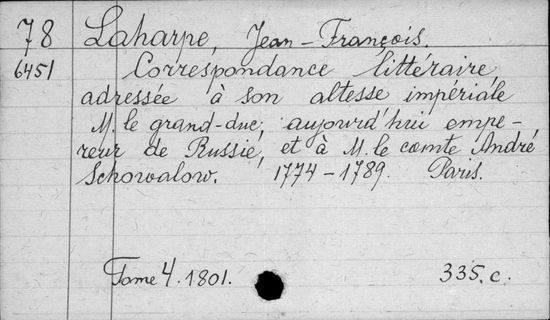 78 Laharpe, Jean-François.
6451 Correspondance littéraire,
adressée à son altesse impériale
M. le grand-duc, aujourd'hui empe-
reur de Russie, et à M. le comte André
Schowalow. 1774-1789. Paris.
Tome 4. 1801. 335. c.